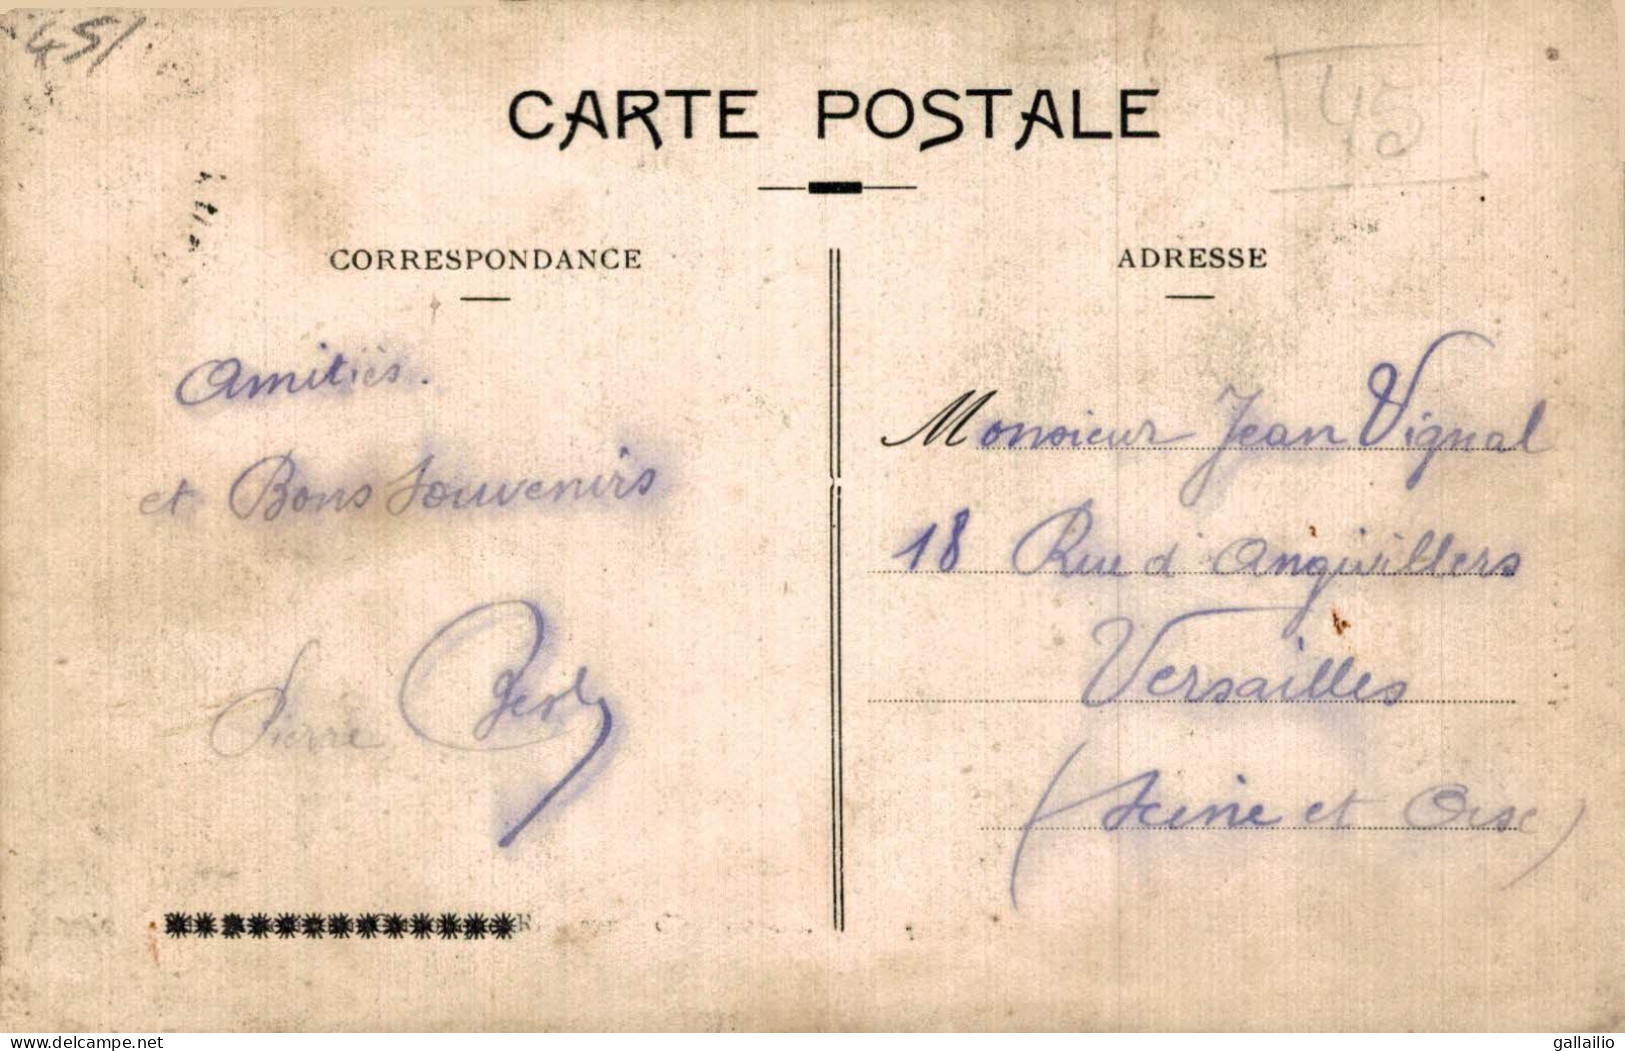 45/
45
CARTE POSTALE
CORRESPONDANCE
ADRESSE
Amitiés.
et Bons Souvenirs
Pierre
Monsieur Jean Vignal
18 Rue d'Angivillers
Versailles
(Seine et Oise)
delcampe.net
gallailio